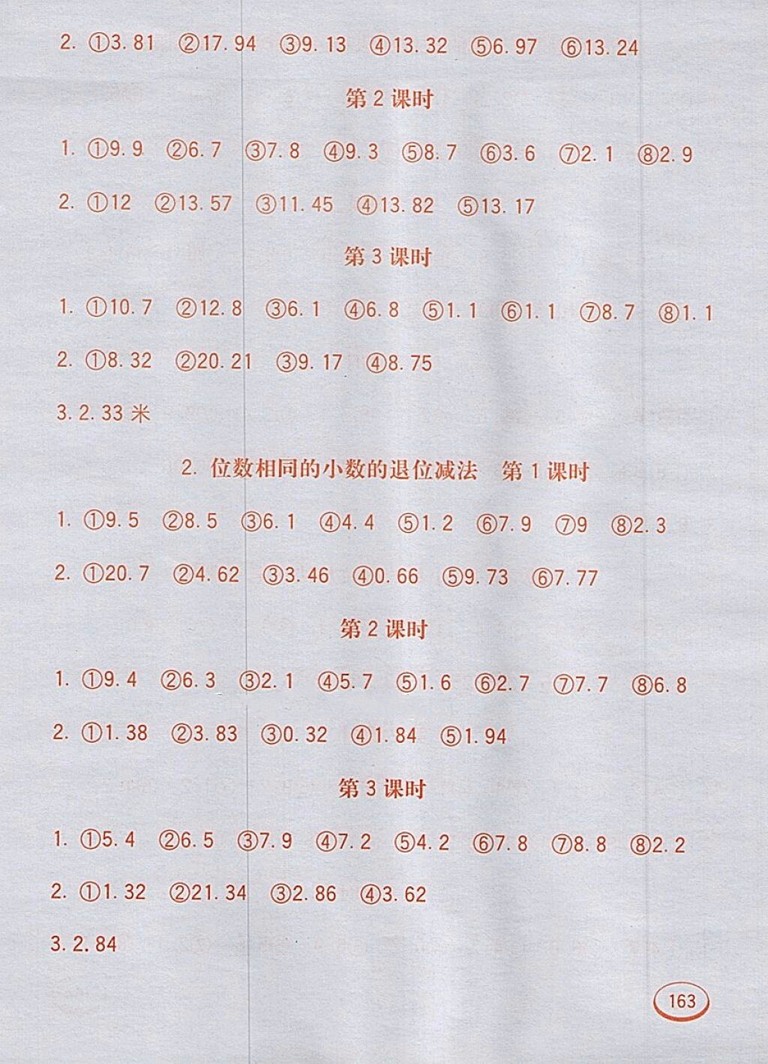 2. ①3. 81 ②17. 94 ③9. 13 ④13. 32 ⑤6. 97 ⑥13. 24
第 2 课时
1. ①9. 9 ②6. 7 ③7. 8 ④9. 3 ⑤8. 7 ⑥3. 6 ⑦2. 1 ⑧2. 9
2. ①12 ②13. 57 ③11. 45 ④13. 82 ⑤13. 17
第 3 课时
1. ①10. 7 ②12. 8 ③6. 1 ④6. 8 ⑤1. 1 ⑥1. 1 ⑦8. 7 ⑧1. 1
2. ①8. 32 ②20. 21 ③9. 17 ④8. 75
3. 2. 33 米
2. 位数相同的小数的退位减法 第 1 课时
1. ①9. 5 ②8. 5 ③6. 1 ④4. 4 ⑤1. 2 ⑥7. 9 ⑦9 ⑧2. 3
2. ①20. 7 ②4. 62 ③3. 46 ④0. 66 ⑤9. 73 ⑥7. 77
第 2 课时
1. ①9. 4 ②6. 3 ③2. 1 ④5. 7 ⑤1. 6 ⑥2. 7 ⑦7. 7 ⑧6. 8
2. ①1. 38 ②3. 83 ③0. 32 ④1. 84 ⑤1. 94
第 3 课时
1. ①5. 4 ②6. 5 ③7. 9 ④7. 2 ⑤4. 2 ⑥7. 8 ⑦8. 8 ⑧2. 2
2. ①1. 32 ②21. 34 ③2. 86 ④3. 62
3. 2. 84
163